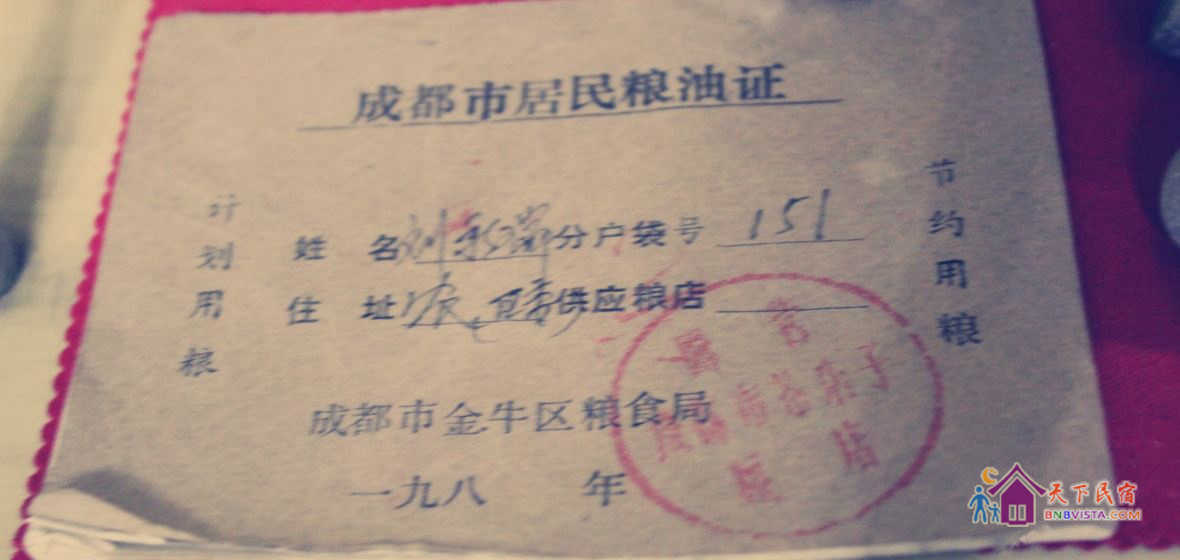 成都市居民粮油证
计划用粮
姓 名 刘 分户袋号 151
住 址 供应粮店
节约用粮
成都市金牛区粮食局
一九八 年
粮店
天下民宿
BNBVISTA.COM